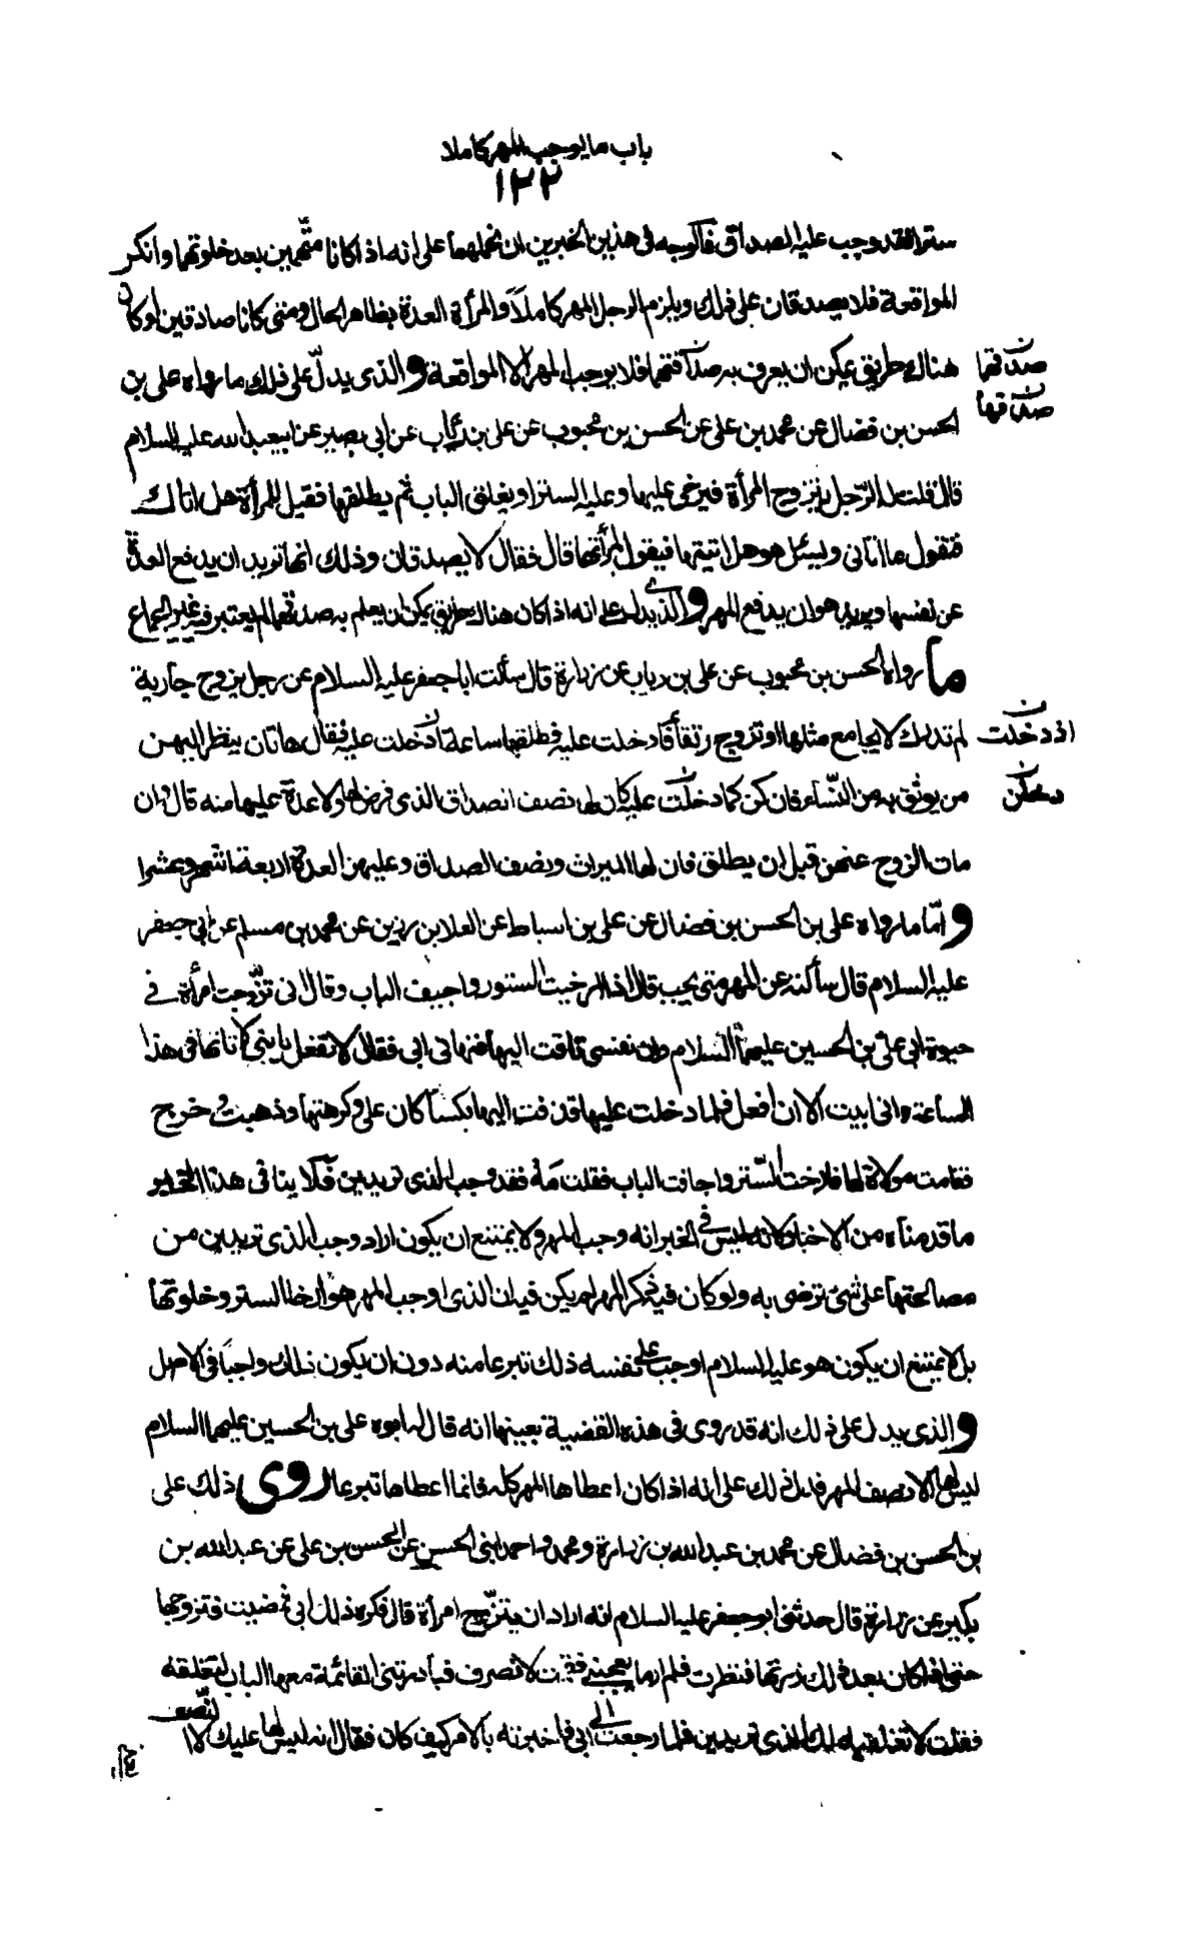 باب ما يوجب المهر كاملا
١٢٢
سترا فقد وجب عليه الصداق فالوجه فى هذين الخبرين ان نحملهما على انه اذا كانا متّهمين بعد خلوتهما وانكر
المواقعة فلا يصدقان على ذلك ويلزم الرجل المهر كاملاً والمرأة العدة بظاهر الحال ومتى كانا صادقين او كان
هناك طريق يمكن ان يعرف به صدقهما فلا يوجب المهر الا المواقعة والذى يدلّ على ذلك ما رواه على بن
صدقهما
صدقها
الحسن بن فضال عن محمد بن على عن الحسن بن محبوب عن على بن رئاب عن ابى بصير عن ابيعبد الله عليه السلام
قال قلت له الرّجل يتزوج المرأة فيرخى عليها وعليه الستر او يغلق الباب ثم يطلقها فقيل للمرأة هل اتاك
فتقول ما اتانى ويسئل هو هل اتيتها فيقول لم آتها قال فقال لا يصدقان وذلك انها تريد ان يدفع العدة
عن نفسها ويريد هو ان يدفع المهر والذى يدل على انه اذا كان هناك طريق يمكن ان يعلم به صدقهما لم يعتبر فيه غير الجماع
ما رواه الحسن بن محبوب عن على بن رياب عن زرارة قال سألت ابا جعفر عليه السلام عن رجل يزوج جارية
لم تدرك لا يجامع مثلها او تزوج رتقاً فادخلت عليه فطلقها ساعة ادخلت عليه فقال هاتان ينظر اليهن
اذ دخلت
من يوثق به من النّساء فان كن كما دخلت عليه كان لها نصف الصداق الذى فرض لها ولا عدة عليهما منه قال وان
دخلن
مات الزوج عنهن قبل ان يطلق فان لها الميراث ونصف الصداق وعليهن العدة اربعة اشهر وعشرا
وامّا ما رواه على بن الحسن بن فضال عن على بن اسباط عن العلا بن رزين عن محمد بن مسلم عن ابى جعفر
عليه السلام قال سألته عن المهر متى يجب قال اذا ارخيت الستور واجيف الباب وقال انى تزّوجت امرأة فى
حيوة ابى على بن الحسين عليهما السلام وان نفسى تاقت اليها فنهانى ابى فقال لا تفعل يا بنى لا تاتها فى هذا
الساعة وانى ابيت الا ان افعل فلما دخلت عليها قذفت اليها بكساً كان على وكرهتها وذهبت وخرج
فقامت مولاة لها فارخت السّتر واجافت الباب فقلت مه فقد وجب الذى تريدين فلا ينافى هذا الخبر
ما قدمناه من الاخبار لانه ليس فى الخبر انه وجب المهر ولا يمتنع ان يكون اراد وجب الذى تريدين من
مصالحتها على شئ ترضى به ولو كان فيه ذكر المهر لم يكن فيه ان الذى اوجب المهر هو ارخا الستر وخلوتها
بل لا يمتنع ان يكون هو عليه السلام اوجب على نفسه ذلك تبرعا منه دون ان يكون ذلك واجبًا فى الاصل
والذى يدل على ذلك انه قد روى فى هذه القضية بعينها انه قال له ابوه على بن الحسين عليهما السلام
ليس لها الا نصف المهر فدل ذلك على انه اذا كان اعطاها المهر كله فانما اعطاها تبرعا روى ذلك على
بن الحسن بن فضال عن محمد بن عبد الله بن زرارة ومحمد واحمد ابنى الحسن عن الحسن بن على عن عبد الله بن
بكير عن زرارة قال حدثنى ابو جعفر عليه السلام انه اراد ان يتزّوج امرأة قال فكره ذلك ابى فمضيت فتزوجتها
حتى اذا كان بعد ذلك زرتها فنظرت فلم ار ما يعجبنى فقمت لانصرف فبادرتنى القائمة معها الباب لتغلقه
فقلت لا تغلقيه لك الذى تريدين فلما رجعت الى ابى فاخبرته بالامر كيف كان فقال انه ليس لها عليك الا
النّصف